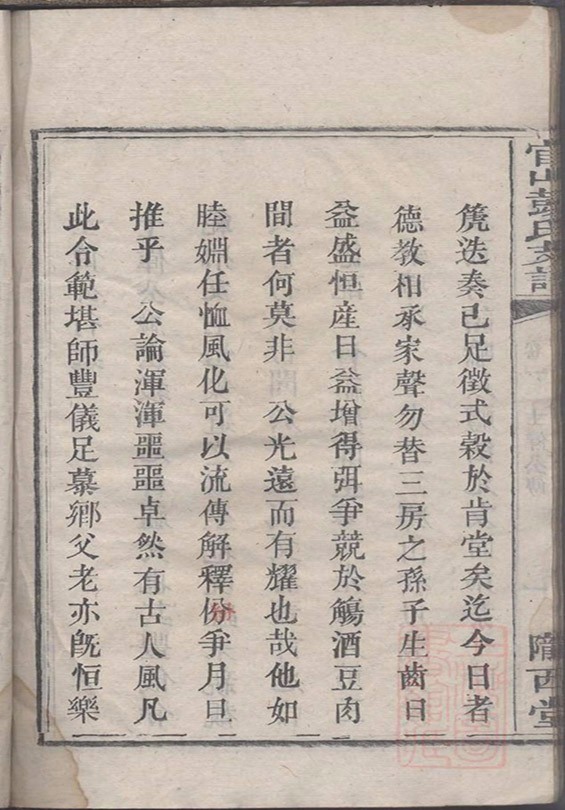 官山彭氏支譜
隴西堂
箎迭奏已足徵式穀於肯堂矣迄今日者
德教相承家聲勿替三房之孫子生齒日
益盛恒産日益增得弭爭競於觴酒豆肉
間者何莫非 公光遠而有耀也哉他如
睦婣任恤風化可以流傳解釋份爭月旦
推乎 公論渾渾噩噩卓然有古人風凡
此令範堪師豐儀足慕鄉父老亦旣恒樂